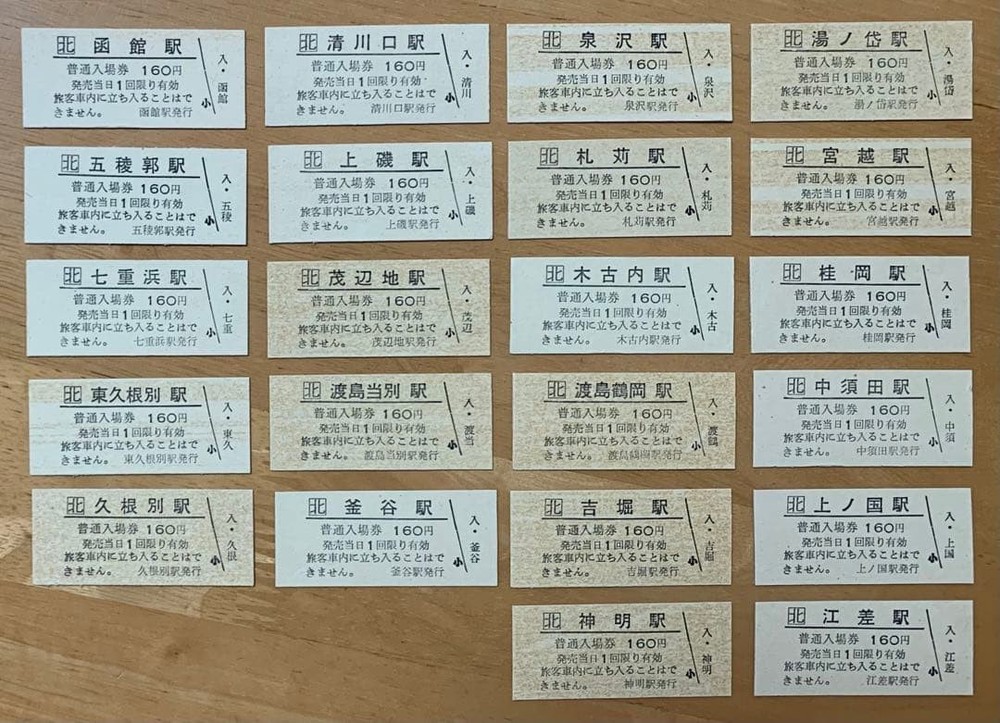 北 函館駅
普通入場券 160円
発売当日1回限り有効
旅客車内に立ち入ることはで
きません。 函館駅発行
小
入・函館
北 五稜郭駅
普通入場券 160円
発売当日1回限り有効
旅客車内に立ち入ることはで
きません。 五稜郭駅発行
小
入・五稜
北 七重浜駅
普通入場券 160円
発売当日1回限り有効
旅客車内に立ち入ることはで
きません。 七重浜駅発行
小
入・七重
北 東久根別駅
普通入場券 160円
発売当日1回限り有効
旅客車内に立ち入ることはで
きません。 東久根別駅発行
小
入・東久
北 久根別駅
普通入場券 160円
発売当日1回限り有効
旅客車内に立ち入ることはで
きません。 久根別駅発行
小
入・久根
北 清川口駅
普通入場券 160円
発売当日1回限り有効
旅客車内に立ち入ることはで
きません。 清川口駅発行
小
入・清川
北 上磯駅
普通入場券 160円
発売当日1回限り有効
旅客車内に立ち入ることはで
きません。 上磯駅発行
小
入・上磯
北 茂辺地駅
普通入場券 160円
発売当日1回限り有効
旅客車内に立ち入ることはで
きません。 茂辺地駅発行
小
入・茂辺
北 渡島当別駅
普通入場券 160円
発売当日1回限り有効
旅客車内に立ち入ることはで
きません。 渡島当別駅発行
小
入・渡当
北 釜谷駅
普通入場券 160円
発売当日1回限り有効
旅客車内に立ち入ることはで
きません。 釜谷駅発行
小
入・釜谷
北 泉沢駅
普通入場券 160円
発売当日1回限り有効
旅客車内に立ち入ることはで
きません。 泉沢駅発行
小
入・泉沢
北 札苅駅
普通入場券 160円
発売当日1回限り有効
旅客車内に立ち入ることはで
きません。 札苅駅発行
小
入・札苅
北 木古内駅
普通入場券 160円
発売当日1回限り有効
旅客車内に立ち入ることはで
きません。 木古内駅発行
小
入・木古
北 渡島鶴岡駅
普通入場券 160円
発売当日1回限り有効
旅客車内に立ち入ることはで
きません。 渡島鶴岡駅発行
小
入・渡鶴
北 吉堀駅
普通入場券 160円
発売当日1回限り有効
旅客車内に立ち入ることはで
きません。 吉堀駅発行
小
入・吉堀
北 神明駅
普通入場券 160円
発売当日1回限り有効
旅客車内に立ち入ることはで
きません。 神明駅発行
小
入・神明
北 湯ノ岱駅
普通入場券 160円
発売当日1回限り有効
旅客車内に立ち入ることはで
きません。 湯ノ岱駅発行
小
入・湯岱
北 宮越駅
普通入場券 160円
発売当日1回限り有効
旅客車内に立ち入ることはで
きません。 宮越駅発行
小
入・宮越
北 桂岡駅
普通入場券 160円
発売当日1回限り有効
旅客車内に立ち入ることはで
きません。 桂岡駅発行
小
入・桂岡
北 中須田駅
普通入場券 160円
発売当日1回限り有効
旅客車内に立ち入ることはで
きません。 中須田駅発行
小
入・中須
北 上ノ国駅
普通入場券 160円
発売当日1回限り有効
旅客車内に立ち入ることはで
きません。 上ノ国駅発行
小
入・上国
北 江差駅
普通入場券 160円
発売当日1回限り有効
旅客車内に立ち入ることはで
きません。 江差駅発行
小
入・江差